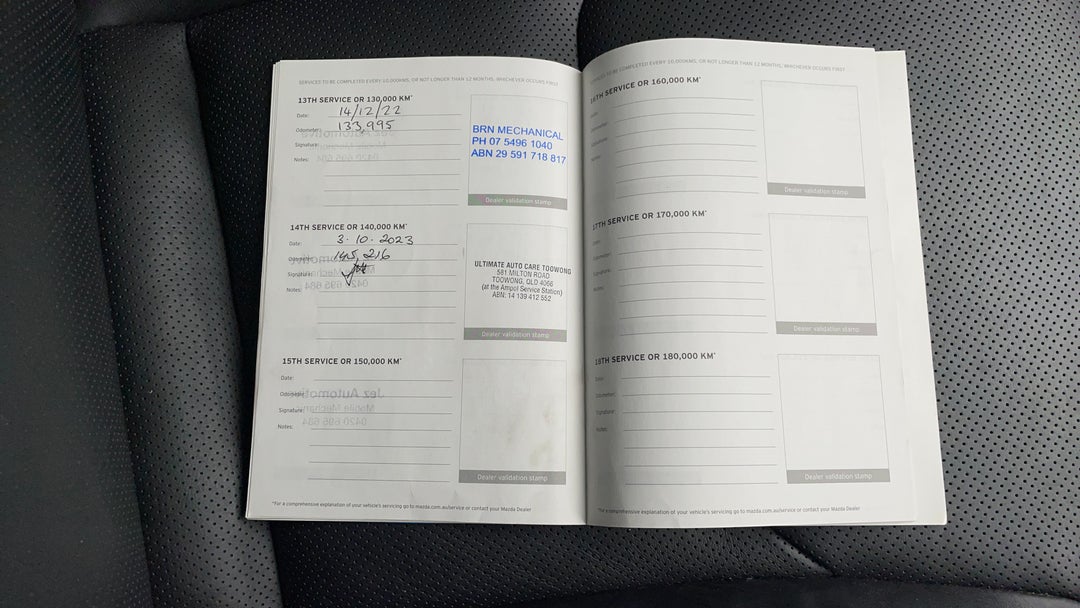 SERVICES TO BE COMPLETED EVERY 10,000KMS, OR NOT LONGER THAN 12 MONTHS, WHICHEVER OCCURS FIRST
13TH SERVICE OR 130,000 KM*
Date: 14/12/22
Odometer: 133,995
Signature:
Notes:
BRN MECHANICAL
PH 07 5496 1040
ABN 29 591 718 817
Dealer validation stamp
14TH SERVICE OR 140,000 KM*
Date: 3·10·2023
Odometer: 145,216
Signature:
Notes:
ULTIMATE AUTO CARE TOOWONG
581 MILTON ROAD
TOOWONG, QLD 4066
(at the Ampol Service Station)
ABN: 14 139 412 552
Dealer validation stamp
15TH SERVICE OR 150,000 KM*
Date:
Odometer:
Signature:
Notes:
Jez Automotive
Mobile Mechanic
0420 695 684
Dealer validation stamp
*For a comprehensive explanation of your vehicle's servicing go to mazda.com.au/service or contact your Mazda Dealer
SERVICES TO BE COMPLETED EVERY 10,000KMS, OR NOT LONGER THAN 12 MONTHS, WHICHEVER OCCURS FIRST
16TH SERVICE OR 160,000 KM*
Date:
Odometer:
Signature:
Notes:
Dealer validation stamp
17TH SERVICE OR 170,000 KM*
Date:
Odometer:
Signature:
Notes:
Dealer validation stamp
18TH SERVICE OR 180,000 KM*
Date:
Odometer:
Signature:
Notes:
Dealer validation stamp
*For a comprehensive explanation of your vehicle's servicing go to mazda.com.au/service or contact your Mazda Dealer